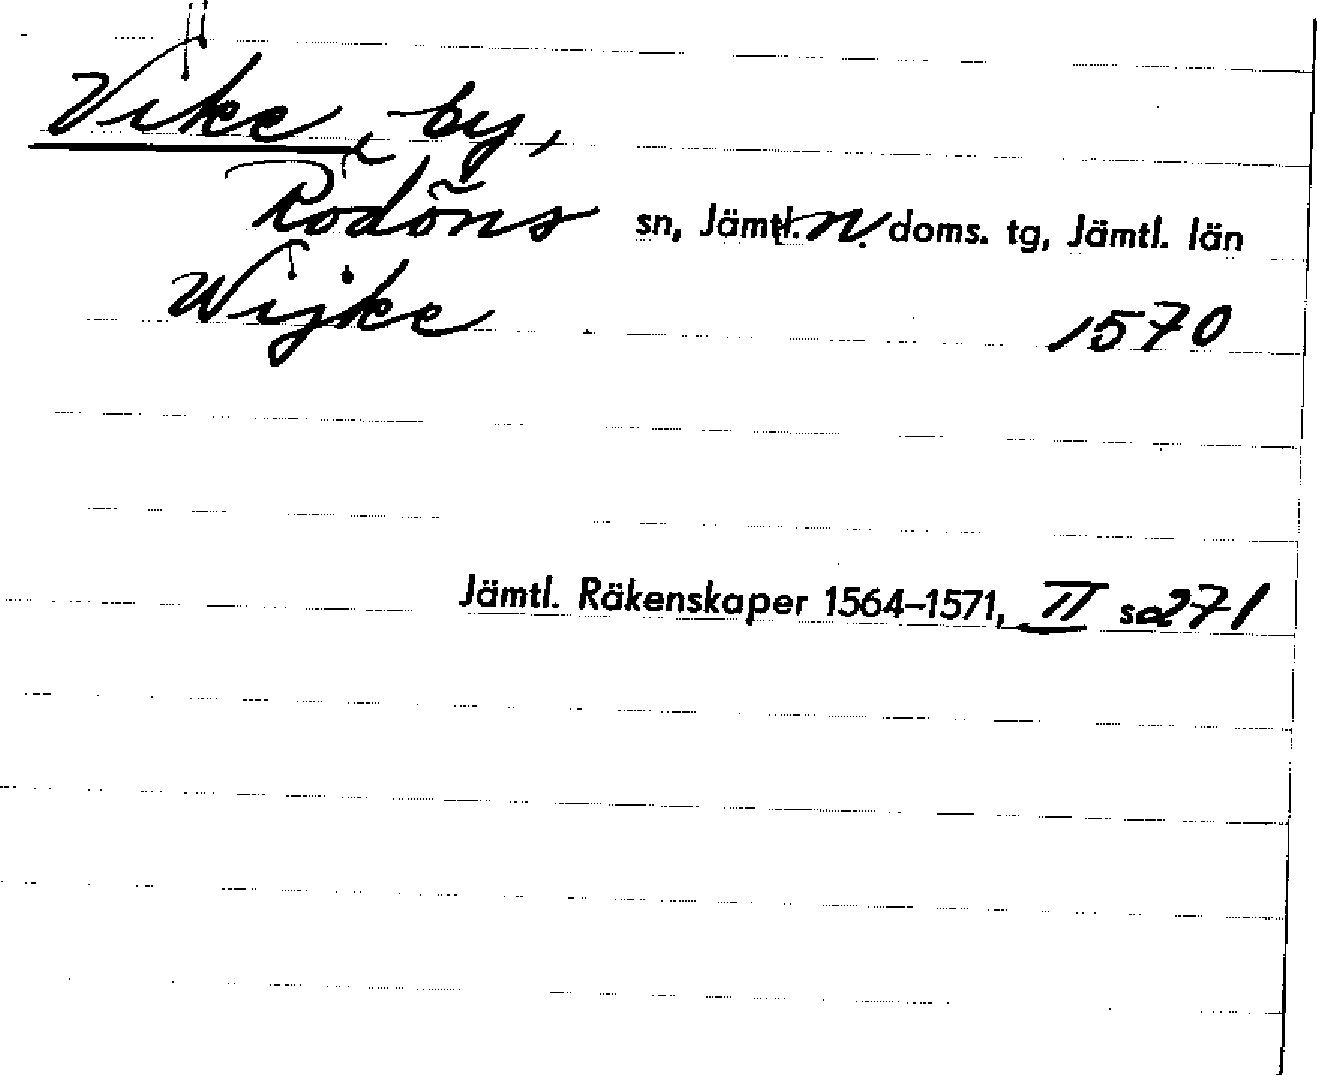 Vike, by,
Rödöns sn, Jämtl. N. doms. tg, Jämtl. län
Wijke 1570
Jämtl. Räkenskaper 1564–1571, II s 271